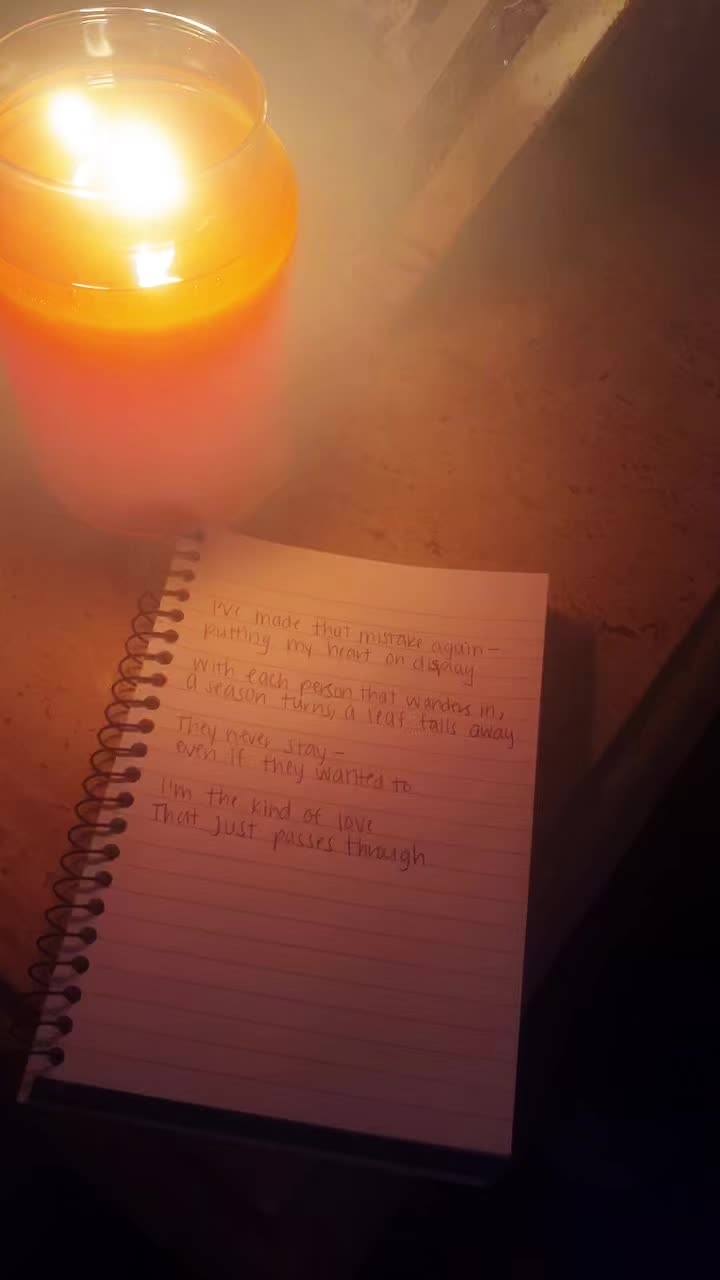 I've made that mistake again—
putting my heart on display
With each person that wanders in,
a season turns, a leaf falls away
They never stay—
even if they wanted to
I'm the kind of love
That just passes through